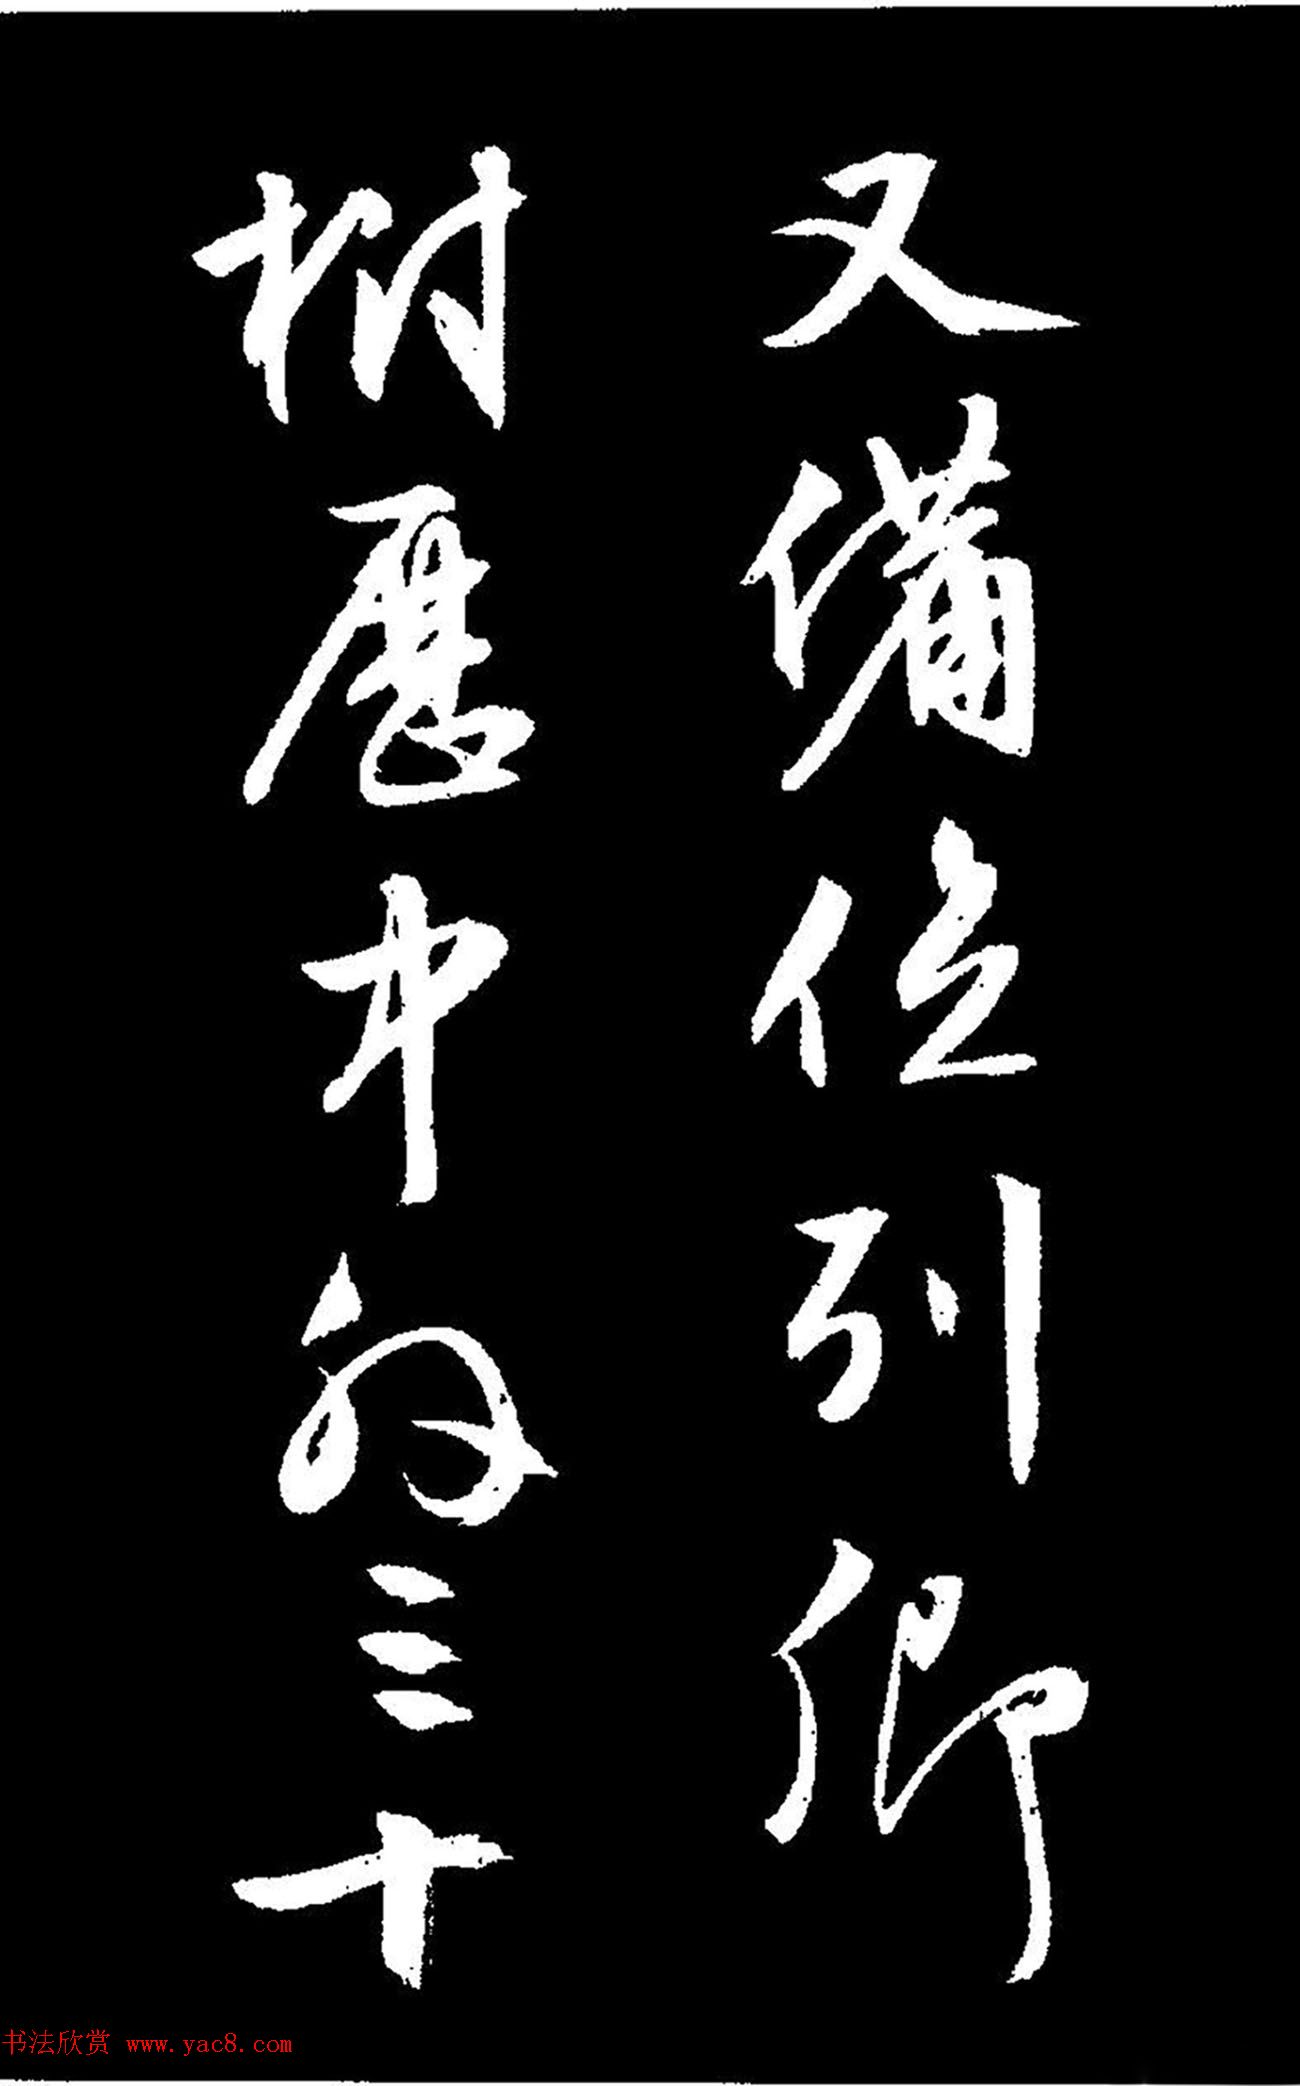 又備位列卿
歷中外三十
书法欣赏 www.yac8.com